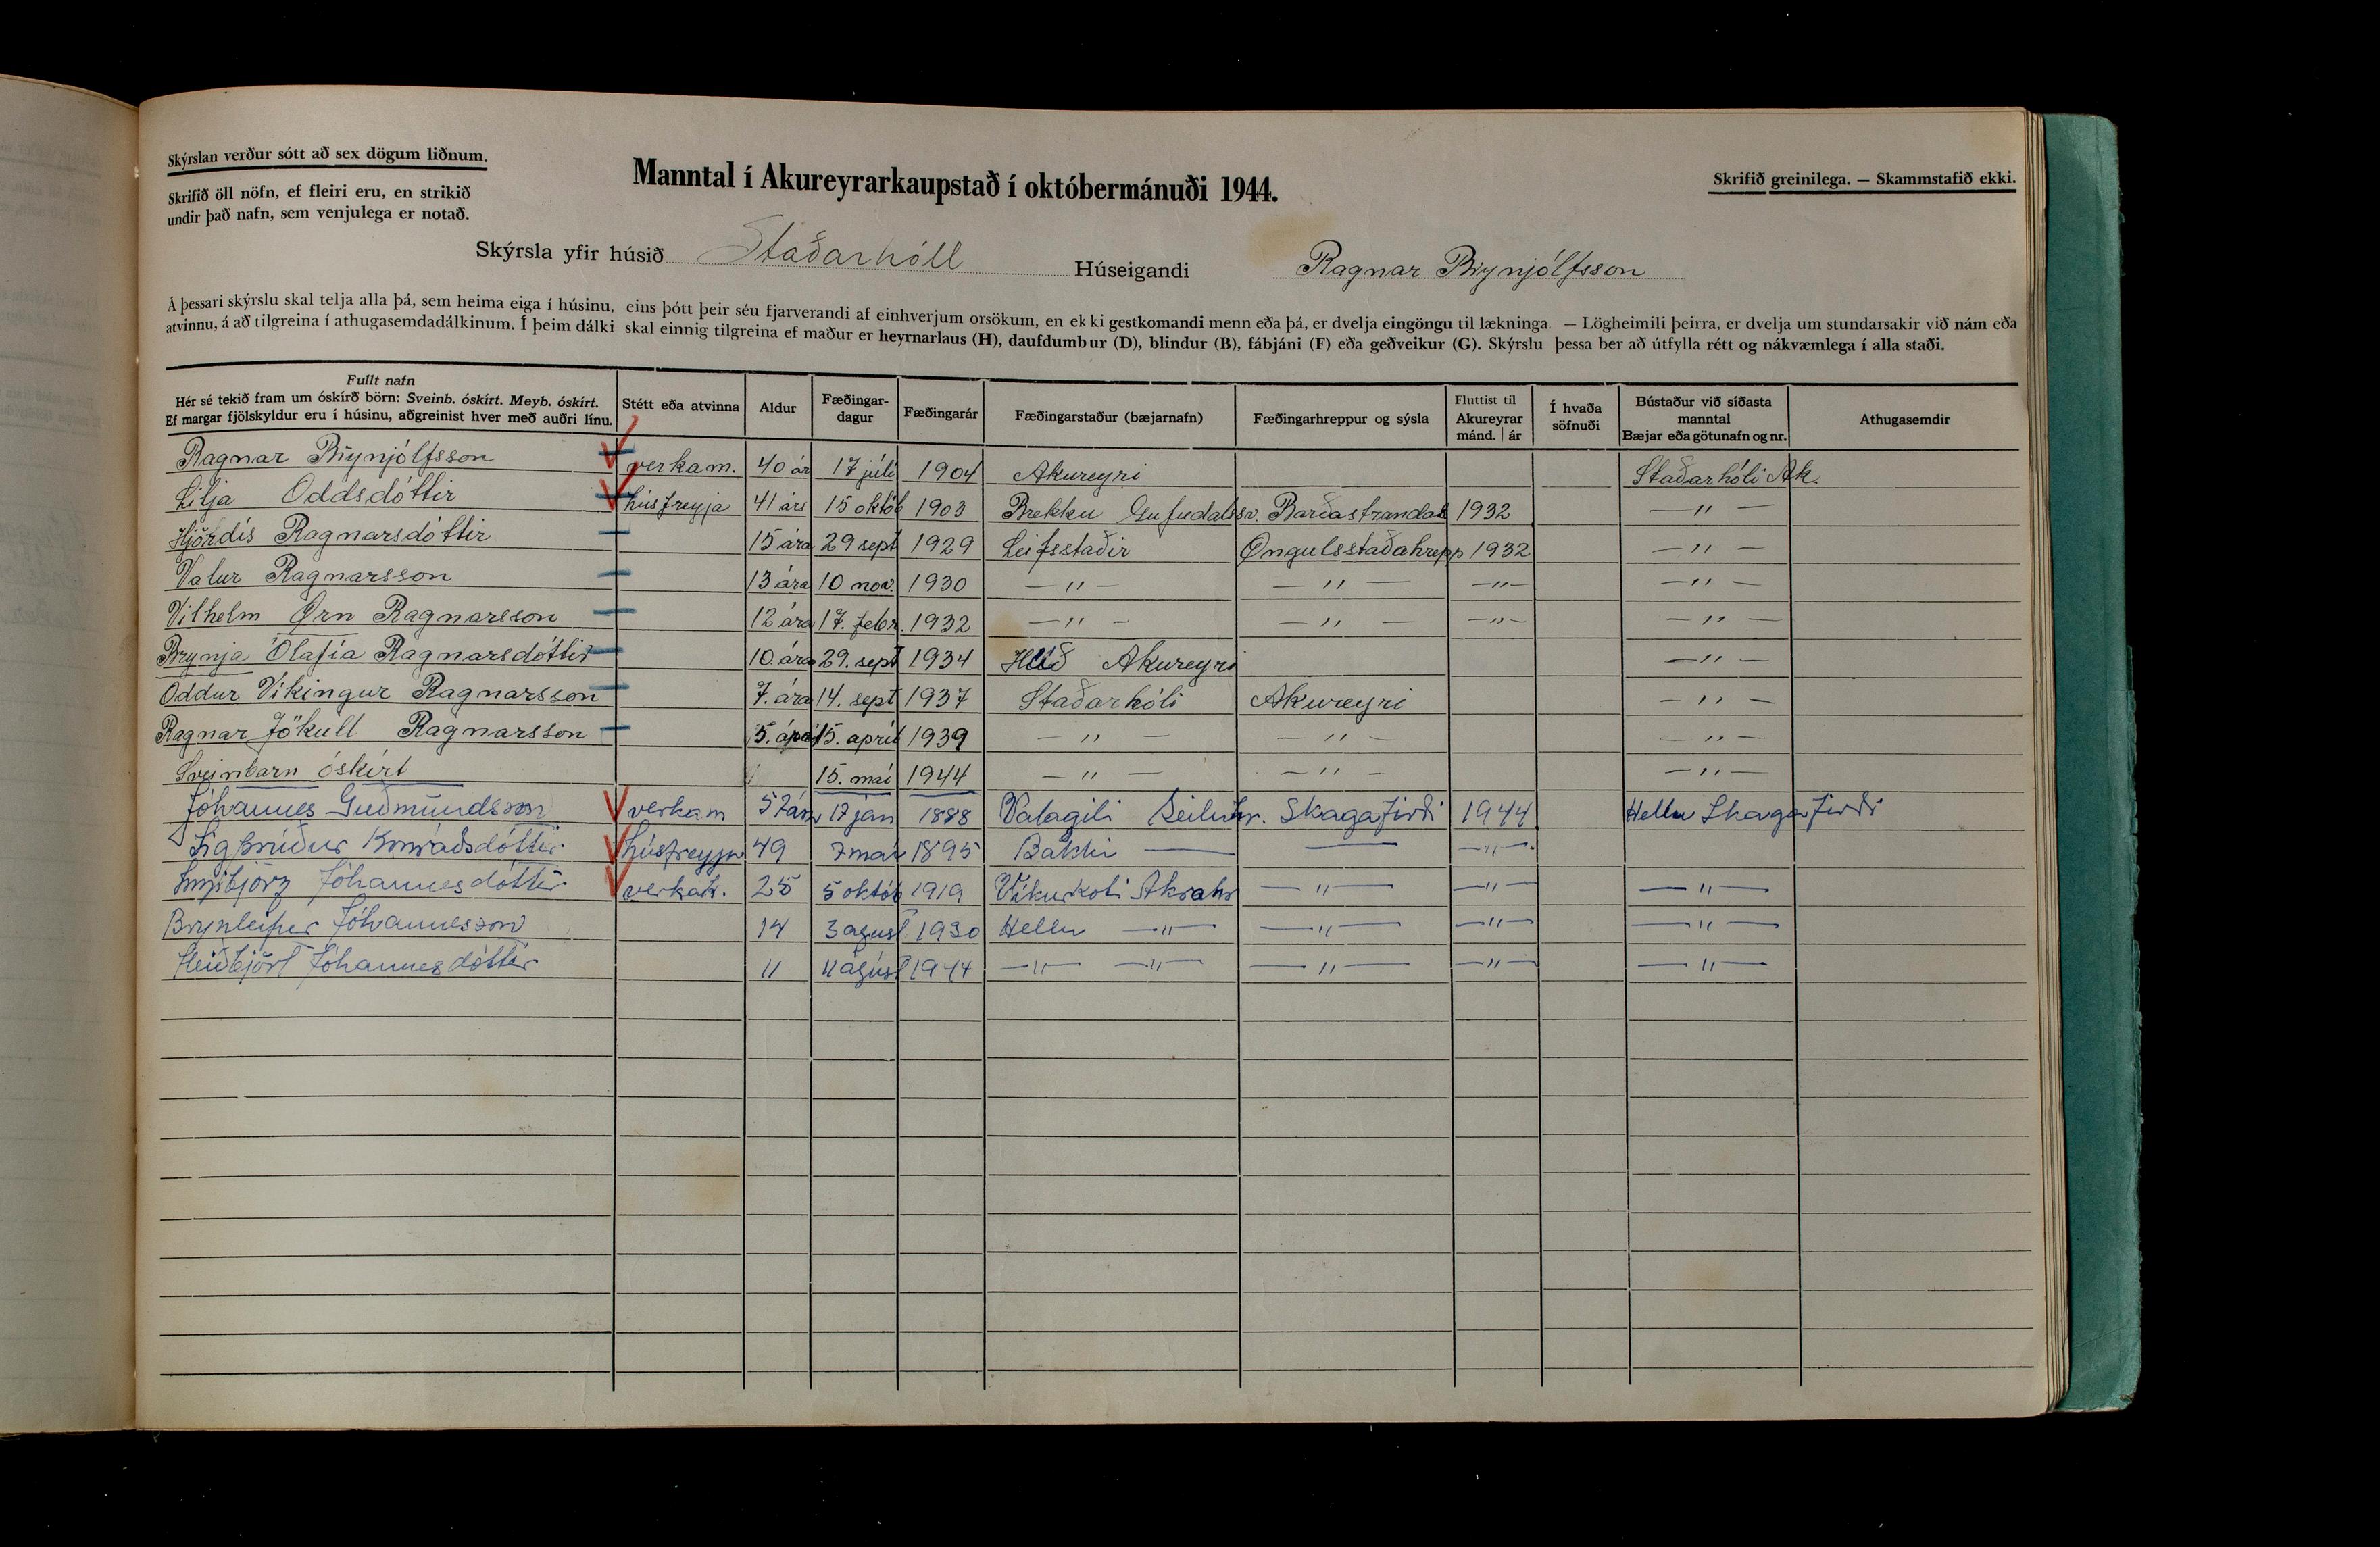 Skýrslan verður sótt að sex dögum liðnum.
Skrifið öll nöfn, ef fleiri eru, en strikið
undir það nafn, sem venjulega er notað.
Manntal í Akureyrarkaupstað í októbermánuði 1944.
Skrifið greinilega. — Skammstafið ekki.
Skýrsla yfir húsið Staðarhóll Húseigandi Ragnar Brynjólfsson
Á þessari skýrslu skal telja alla þá, sem heima eiga í húsinu, eins þótt þeir séu fjarverandi af einhverjum orsökum, en ekki gestkomandi menn eða þá, er dvelja eingöngu til lækninga. — Lögheimili þeirra, er dvelja um stundarsakir við nám eða
atvinnu, á að tilgreina í athugasemdadálkinum. Í þeim dálki skal einnig tilgreina ef maður er heyrnarlaus (H), daufdumbur (D), blindur (B), fábjáni (F) eða geðveikur (G). Skýrslu þessa ber að útfylla rétt og nákvæmlega í alla staði.
Fullt nafn
Hér sé tekið fram um óskírð börn: Sveinb. óskírt. Meyb. óskírt.
Ef margar fjölskyldur eru í húsinu, aðgreinist hver með auðri línu.
Stétt eða atvinna
Aldur
Fæðingar-
dagur
Fæðingarár
Fæðingarstaður (bæjarnafn)
Fæðingarhreppur og sýsla
Fluttist til
Akureyrar
mánd. | ár
Í hvaða
söfnuði
Bústaður við síðasta
manntal
Bæjar eða götunafn og nr.
Athugasemdir
Ragnar Brynjólfsson verkam. 40 ár 17 júlí 1904 Akureyri Staðarhóli Ak.
Lilja Oddsdóttir húsfreyja 41 árs 15 októb 1903 Brekku Gufudalssv. Barðastrandas 1932 — " —
Hjördís Ragnarsdóttir 15 ára 29 sept 1929 Leifsstaðir Öngulsstaðahrepp 1932 — " —
Valur Ragnarsson 13 ára 10 nov. 1930 — " — — " — — " — — " —
Vilhelm Örn Ragnarsson 12 ára 17. febr. 1932 — " — — " — — " — — " —
Brynja Ólafía Ragnarsdóttir 10. ára 29. sept 1934 Hlíð Akureyri — " —
Oddur Víkingur Ragnarsson 7. ára 14. sept 1937 Staðarhóli Akureyri — " —
Ragnar Jökull Ragnarsson 5. ára 15. apríl 1939 — " — — " — — " —
Sveinbarn óskírt 15. maí 1944 — " — — " — — " —
Jóhannes Guðmundsson verkam 17 jan 1888 Valagili Seiluhr. Skagafirði 1944 Hellu Skagafirði
Sigþrúður Konráðsdóttir húsfreyja 49 7 maí 1895 Bakki — — — " —
Jóhannesdóttir verkak. 25 5 októb 1919 Víkurkoti Akrahr — " — — " — — " —
Brynleifur Jóhannesson 14 3 agust 1930 Hellu — " — — " — — " — — " —
Heiðbjört Jóhannesdóttir 11 11 ágúst — " — — " — — " — — " — — " —